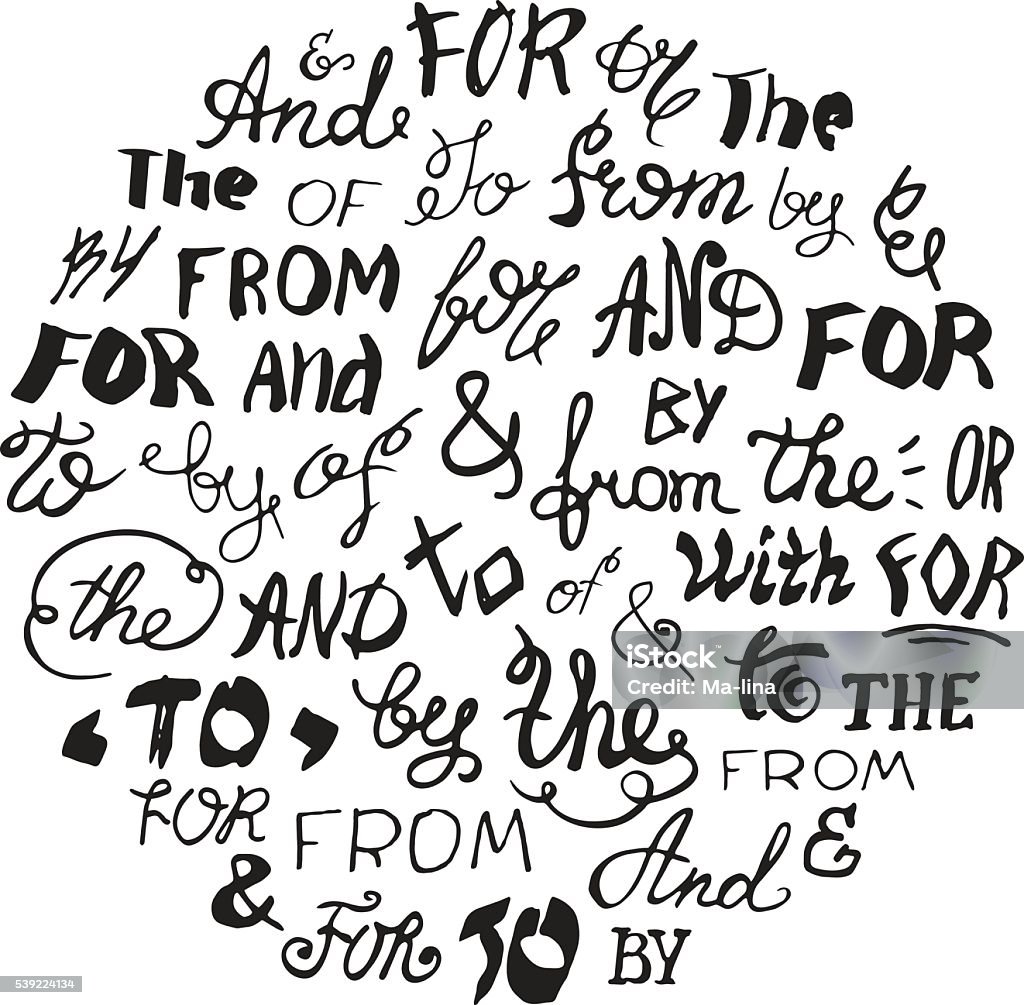 & FOR or
And The
The OF To from by &
BY FROM for AND FOR
FOR And & BY
to by of from the OR
the AND to of & with FOR
iStock
Credit: Ma-lina
TO by the to THE
FOR FROM FROM
& And &
FOR TO BY
539224134